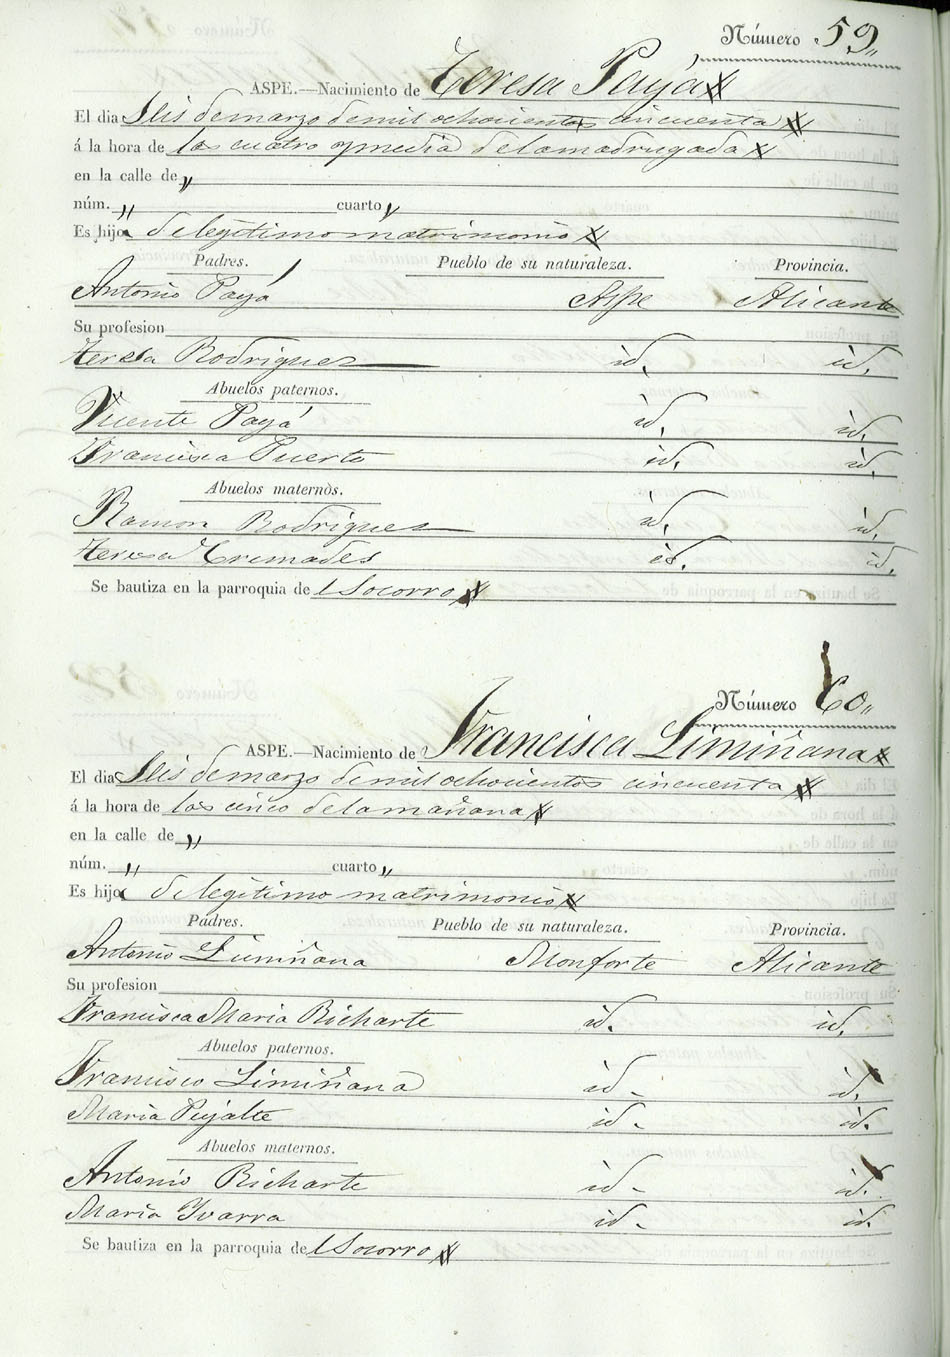 Número 59,,
ASPE.—Nacimiento de Teresa Payá
El dia Seis de marzo de mil ochocientos cincuenta
á la hora de las cuatro y media de la madrugada
en la calle de ,,
núm. ,, cuarto ,,
Es hija de legítimo matrimonio
Padres. Pueblo de su naturaleza. Provincia.
Antonio Payá Aspe Alicante
Su profesion
Teresa Rodriguez id. id.
Abuelos paternos.
Vicente Payá id. id.
Francisca Puerto id. id.
Abuelos maternos.
Ramon Rodriguez id. id.
Teresa Cremades id. id.
Se bautiza en la parroquia del Socorro
Número 60,,
ASPE.—Nacimiento de Francisca Limiñana
El dia Seis de marzo de mil ochocientos cincuenta
á la hora de las cinco de la mañana
en la calle de ,,
núm. ,, cuarto ,,
Es hija de legítimo matrimonio
Padres. Pueblo de su naturaleza. Provincia.
Antonio Limiñana Monforte Alicante
Su profesion
Francisca Maria Richarte id. id.
Abuelos paternos.
Francisco Limiñana id. id.
Maria Pujalte id. id.
Abuelos maternos.
Antonio Richarte id. id.
Maria Yvarra id. id.
Se bautiza en la parroquia del Socorro